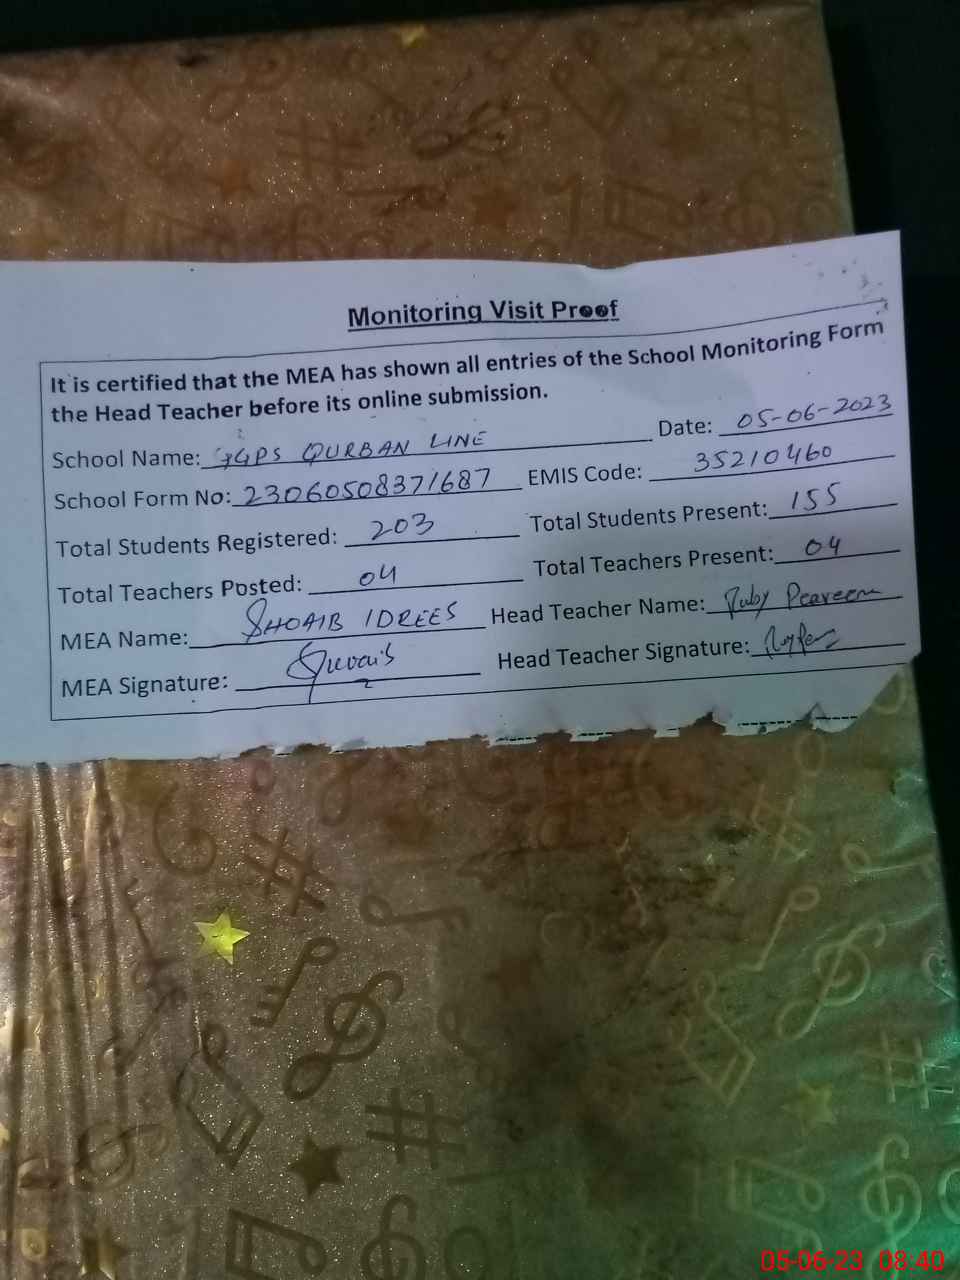 Monitoring Visit Proof
It is certified that the MEA has shown all entries of the School Monitoring Form
the Head Teacher before its online submission.
School Name: GGPS QURBAN LINE Date: 05-06-2023
School Form No: 23060508371687 EMIS Code: 35210460
Total Students Registered: 203 Total Students Present: 155
Total Teachers Posted: 04 Total Teachers Present: 04
MEA Name: SHOAIB IDREES Head Teacher Name: Ruby Perveen
MEA Signature: Head Teacher Signature:
05-06-23 08:40